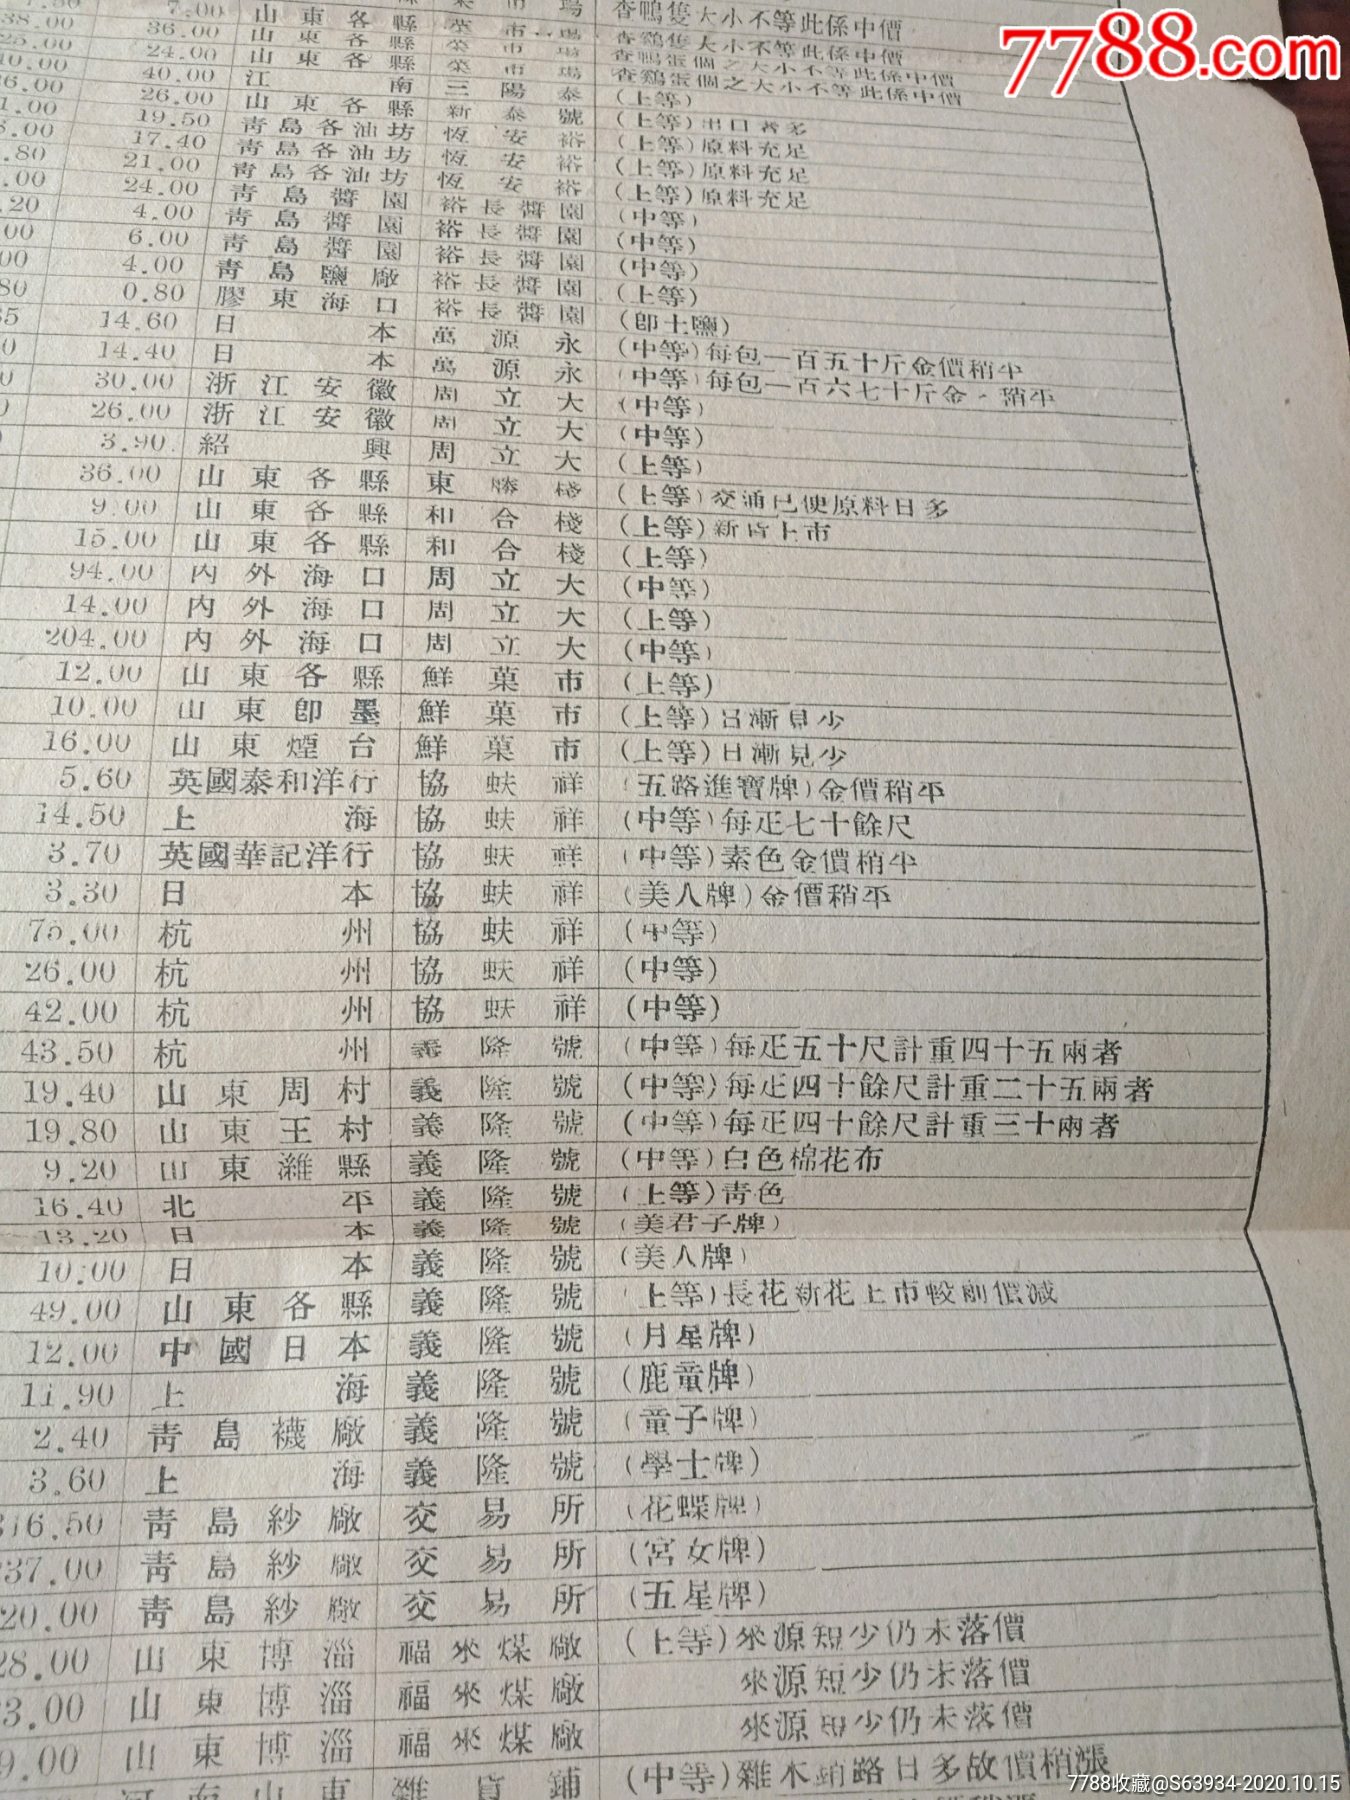 7788.com
7.00 山東各縣 市場 查鴨隻大小不等此係中價
36.00 山東各縣 菜市場 查鷄隻大小不等此係中價
24.00 山東各縣 菜市場 查鴨蛋個之大小不等此係中價
40.00 江南 三陽泰 查鷄蛋個之大小不等此係中價
26.00 山東各縣 新泰號 (上等)
19.50 靑島各油坊 恆安裕 (上等)出口者多
17.40 靑島各油坊 恆安裕 (上等)原料充足
21.00 靑島各油坊 恆安裕 (上等)原料充足
24.00 靑島醬園 裕長醬園 (上等)原料充足
4.00 靑島醬園 裕長醬園 (中等)
6.00 靑島醬園 裕長醬園 (中等)
4.00 靑島鹽廠 裕長醬園 (中等)
0.80 膠東海口 裕長醬園 (上等)
14.60 日本 萬源永 (卽土鹽)
14.40 日本 萬源永 (中等)每包一百五十斤金價稍平
30.00 浙江安徽 周立大 (中等)每包一百六七十斤金 稍平
26.00 浙江安徽 周立大 (中等)
3.90 紹興 周立大 (中等)
36.00 山東各縣 東 棧 (上等)
9.00 山東各縣 和合棧 (上等)交通已便原料日多
15.00 山東各縣 和合棧 (上等)新 上市
94.00 內外海口 周立大 (上等)
14.00 內外海口 周立大 (中等)
204.00 內外海口 周立大 (上等)
12.00 山東各縣 鮮菓市 (中等)
10.00 山東卽墨 鮮菓市 (上等)
16.00 山東煙台 鮮菓市 (上等)日漸見少
5.60 英國泰和洋行 協蚨祥 (上等)日漸見少
14.50 上海 協蚨祥 (五路進寶牌)金價稍平
3.70 英國華記洋行 協蚨祥 (中等)每疋七十餘尺
3.30 日本 協蚨祥 (中等)素色金價稍平
75.00 杭州 協蚨祥 (美人牌)金價稍平
26.00 杭州 協蚨祥 (中等)
42.00 杭州 協蚨祥 (中等)
43.50 杭州 義隆號 (中等)
19.40 山東周村 義隆號 (中等)每疋五十尺計重四十五兩者
19.80 山東王村 義隆號 (中等)每疋四十餘尺計重二十五兩者
9.20 山東濰縣 義隆號 (中等)每疋四十餘尺計重三十兩者
16.40 北平 義隆號 (中等)白色棉花布
13.20 日本 義隆號 (上等)靑色
10.00 日本 義隆號 (美君子牌)
49.00 山東各縣 義隆號 (美人牌)
12.00 中國日本 義隆號 (上等)長花新花上市較前價減
11.90 上海 義隆號 (月星牌)
2.40 靑島襪廠 義隆號 (鹿童牌)
3.60 上海 義隆號 (童子牌)
316.50 靑島紗廠 交易所 (學士牌)
37.00 靑島紗廠 交易所 (花蝶牌)
20.00 靑島紗廠 交易所 (宮女牌)
28.00 山東博淄 福來煤廠 (五星牌)
3.00 山東博淄 福來煤廠 (上等)來源短少仍未落價
9.00 山東博淄 福來煤廠 來源短少仍未落價
山東 雜貨鋪 來源短少仍未落價
(中等)雜木銷路日多故價稍漲
7788收藏@S63934-2020.10.15